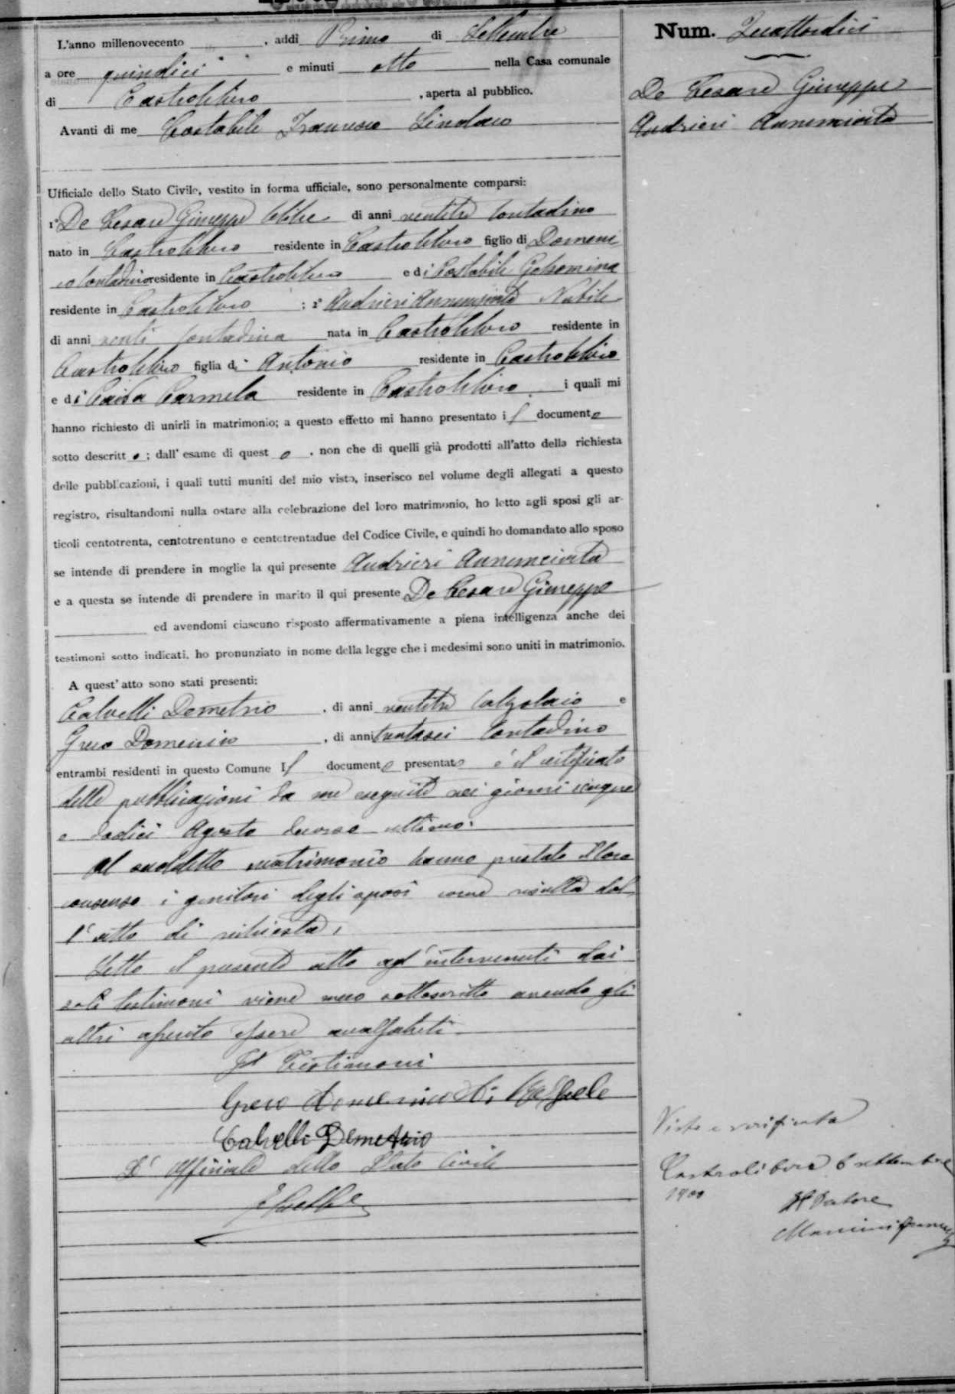 Num. Quattordici
De Cesare Giuseppe
Andrieri Annunciata
L'anno millenovecento , addì Primo di Settembre
a ore quindici e minuti otto nella Casa comunale
di Castrolibero , aperta al pubblico.
Avanti di me Costabile Francesco Sindaco
Ufficiale dello Stato Civile, vestito in forma ufficiale, sono personalmente comparsi:
1° De Cesare Giuseppe Celibe di anni ventitre Contadino
nato in Castrolibero residente in Castrolibero figlio di Domeni
co Contadino residente in Castrolibero e di Costabile Gelsomina
residente in Castrolibero ; 2° Andrieri Annunciata Nubile
di anni venti Contadina nata in Castrolibero residente in
Castrolibero figlia di Antonio residente in Castrolibero
e di Carmela residente in Castrolibero i quali mi
hanno richiesto di unirli in matrimonio; a questo effetto mi hanno presentato il documento
sotto descritto; dall'esame di questo, non che di quelli già prodotti all'atto della richiesta
delle pubblicazioni, i quali tutti muniti del mio visto, inserisco nel volume degli allegati a questo
registro, risultandomi nulla ostare alla celebrazione del loro matrimonio, ho letto agli sposi gli ar-
ticoli centotrenta, centotrentuno e centotrentadue del Codice Civile, e quindi ho domandato allo sposo
se intende di prendere in moglie la qui presente Andrieri Annunciata
e a questa se intende di prendere in marito il qui presente De Cesare Giuseppe
ed avendomi ciascuno risposto affermativamente a piena intelligenza anche dei
testimoni sotto indicati, ho pronunziato in nome della legge che i medesimi sono uniti in matrimonio.
A quest'atto sono stati presenti:
Calvelli Demetrio , di anni ventitre Calzolaio e
Greco Domenico , di anni trentasei Contadino
entrambi residenti in questo Comune Il documento presentato è il certificato
delle pubblicazioni da me eseguite nei giorni cinque
e dodici Agosto decorso ultimo.
Al suddetto matrimonio hanno prestato il loro
consenso i genitori degli sposi come risulta dal
l'atto di richiesta.
Letto il presente atto agl'intervenuti dai
soli testimoni viene meco sottoscritto avendo gli
altri asserito essere analfabeti.
I Testimoni
Greco Domenico di Raffaele
Calvelli Demetrio
L'Ufficiale dello Stato Civile
Visto e verificato
Castrolibero 6 settembre
1900
Il Pretore
Mancini